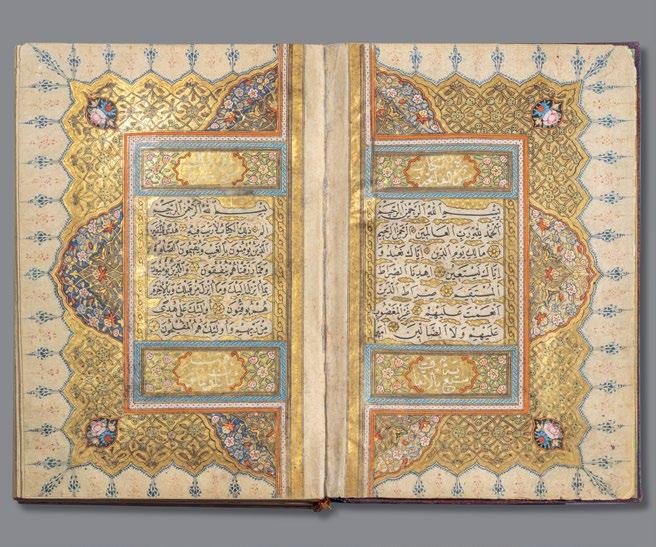 بسم الله الرحمن الرحيم
الحمد لله رب العالمين الرحمن الرحيم
مالك يوم الدين اياك نعبد و
اياك نستعين اهدنا الصراط
المستقيم صراط الذين
انعمت عليهم غير المغضوب
عليهم ولا الضالين
بسم الله الرحمن الرحيم
الم ذلك الكتاب لا ريب فيه هدى للمتقين
الذين يؤمنون بالغيب ويقيمون الصلوة
ومما رزقناهم ينفقون والذين يؤمنون
بما انزل اليك وما انزل من قبلك وبالاخرة
هم يوقنون اولئك على هدى
من ربهم واولئك هم المفلحون